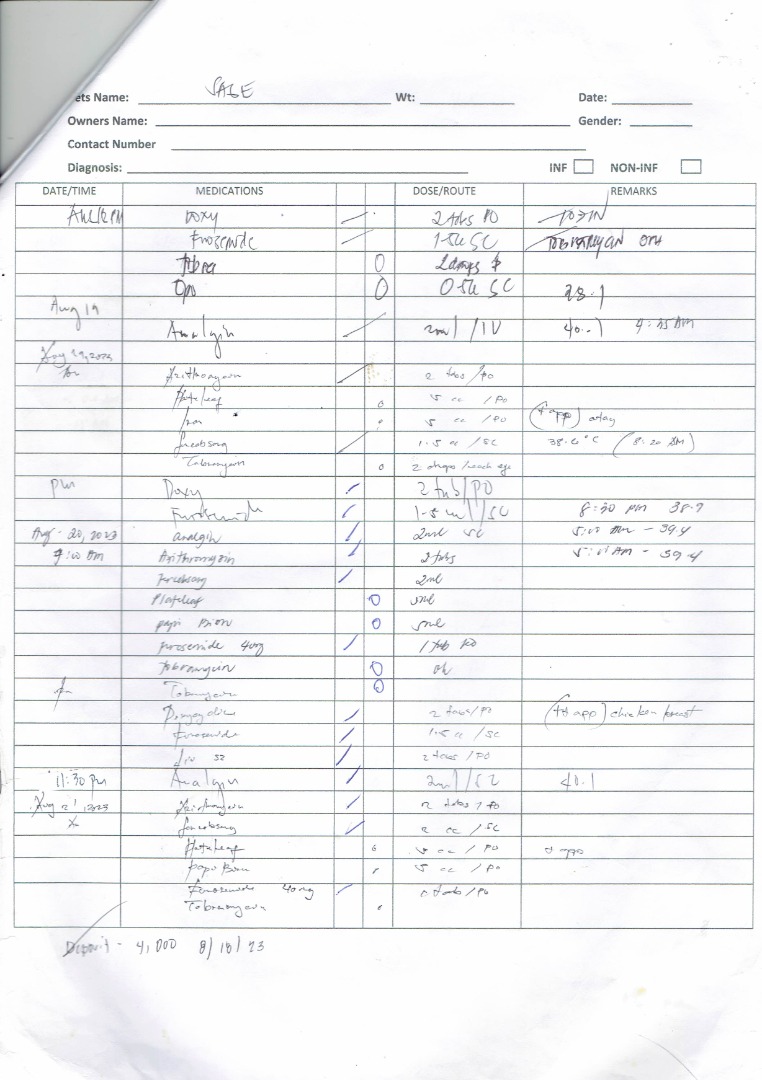 ets Name: SABE Wt: Date:
Owners Name: Gender:
Contact Number
Diagnosis: INF NON-INF
DATE/TIME MEDICATIONS DOSE/ROUTE REMARKS
Doxy 2 tabs PO
Frosemide 1.5cc SC TOBRAMYCIN
Tobra 2 drops
0.5cc SC 38.1
Aug 19
Analgin 2ml / IV 40.1 4:35 AM
Aug 19, 2023
Azithromycin 2 tabs /PO
Plateleaf 5 cc / PO
5 cc / PO (+ app)
Jacobsong 1.5 cc / SC 38.6°C (8:20 AM)
Tobramycin 2 drops /each eye
pm Doxy 2 tab/PO
Furosemide 1.5 ml / SC 8:30 pm 38.7
Aug - 20, 2023 analgin 2ml SC 5:00 AM - 39.4
9:00 AM Azithromycin 2 tabs 5:00 AM - 39.4
2ml
Plateleaf 5ml
papi Bion 5ml
furosemide 40mg 1 tab PO
tobramycin
Tobramycin
Doxycycline 2 tabs/PO (++ app) chicken breast
Furosemide 1.5 cc / SC
2 tabs / PO
11:30 PM Analgin 2ml/SC 40.1
Aug 21, 2023 Azithromycin 2 tabs / PO
2 cc / SC
Plateleaf 5 cc / PO
Papi Bion 5 cc / PO
Furosemide 40mg tabs/PO
Tobramycin
Deposit - 4,000 8/18/23